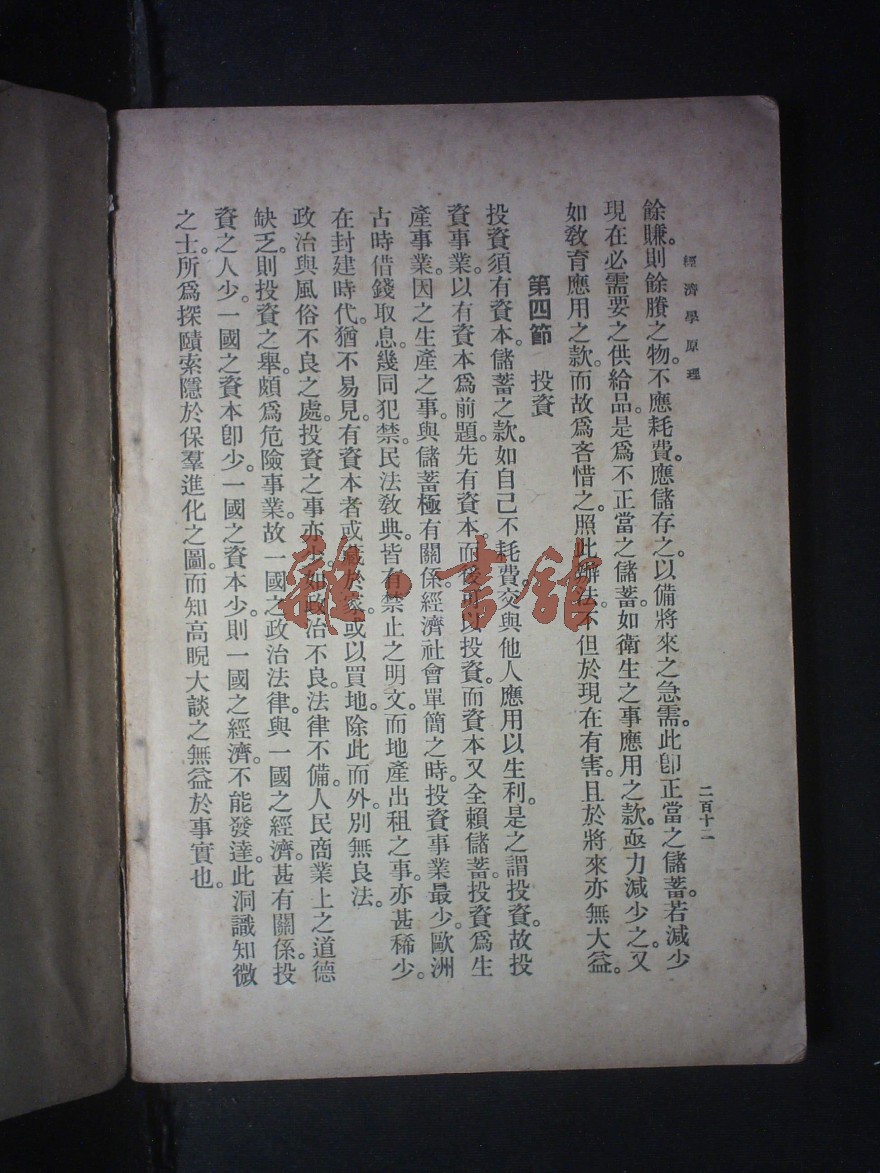 經濟學原理
二百十二
餘賺。則餘賸之物。不應耗費。應儲存之。以備將來之急需。此卽正當之儲蓄。若減少
現在必需要之供給品。是爲不正當之儲蓄。如衞生之事應用之款。亟力減少之。又
如敎育應用之款。而故爲吝惜之。照此辦法。不但於現在有害。且於將來亦無大益。
第四節 投資
投資須有資本。儲蓄之款。如自己不耗費。交與他人應用以生利。是之謂投資。故投
資事業。以有資本爲前題。先有資本而後可以投資。而資本又全賴儲蓄。投資爲生
產事業。因之生產之事。與儲蓄極有關係。經濟社會單簡之時。投資事業最少。歐洲
古時借錢取息。幾同犯禁。民法敎典。皆有禁止之明文。而地產出租之事。亦甚稀少。
在封建時代。猶不易見。有資本者或藏於家。或以買地。除此而外。別無良法。
政治與風俗不良之處。投資之事亦少。如政治不良。法律不備。人民商業上之道德
缺乏。則投資之舉。頗爲危險事業。故一國之政治法律。與一國之經濟。甚有關係。投
資之人少。一國之資本卽少。一國之資本少。則一國之經濟。不能發達。此洞識知微
之士。所爲探賾索隱於保羣進化之圖。而知高睨大談之無益於事實也。
雜·書館